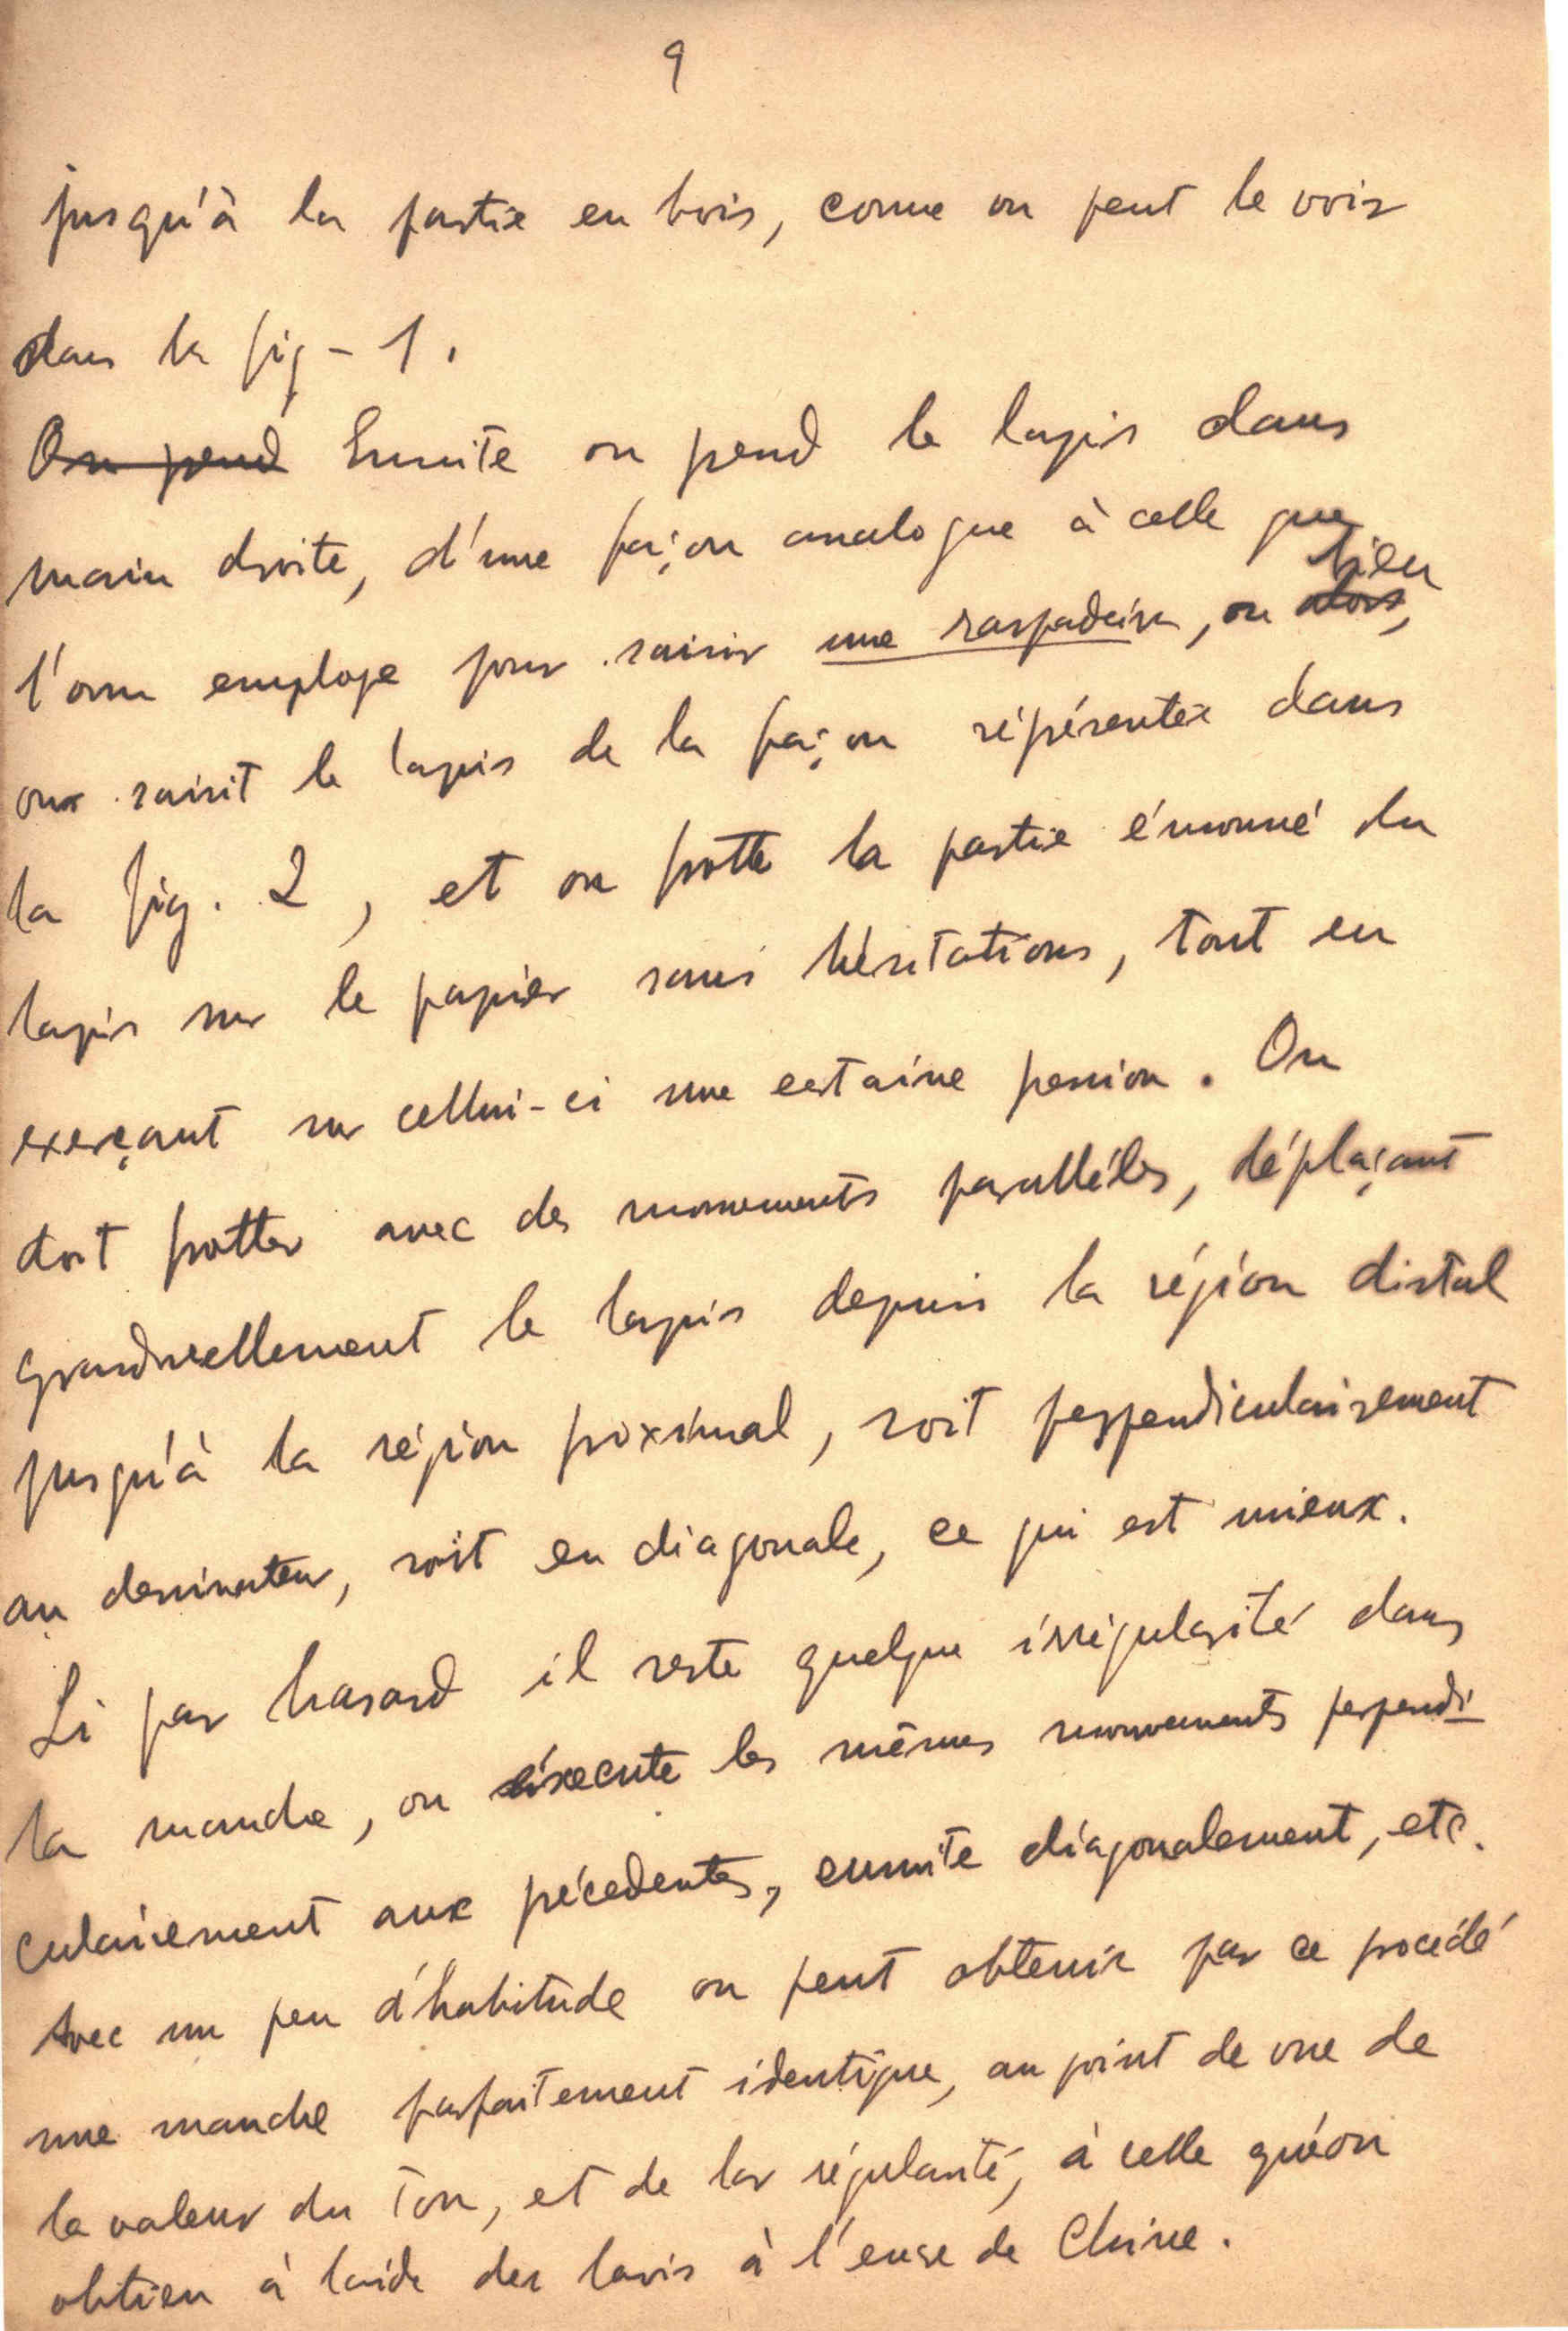 9
jusqu'à la partie en bois, come on peut le voir
dans la fig - 1.
On prend Ensuite on prend le lapis dans
main droite, d'une façon analogue à celle que
bien
l'onn employe pour saisir une raspadeira, ou alors,
on saisit le lapis de la façon réprésentée dans
la fig. 2, et on frotte la partie émoussé du
lapis sur le papier sans hésitations, tout en
exerçant sur cellui-ci une certaine pression. On
doit frotter avec des mouvements parallèles, déplaçant
graduellement le lapis depuis la région distal
jusqu'à la région proximal, soit perpendiculairement
au dessinateur, soit en diagonale, ce qui est mieux.
Si par hasard il reste quelque irrégularité dans
la manche, on éxecute les mêmes mouvements perpendi
culairement aux précedentes, ensuite diagonalement, etc.
Avec un peu d'habitude on peut obtenir par ce procédé
une manche parfaitement identique, au point de vue de
la valeur du ton, et de la régularité, à celle qu'on
obtien à l'aide des lavis à l'encre de Chine.